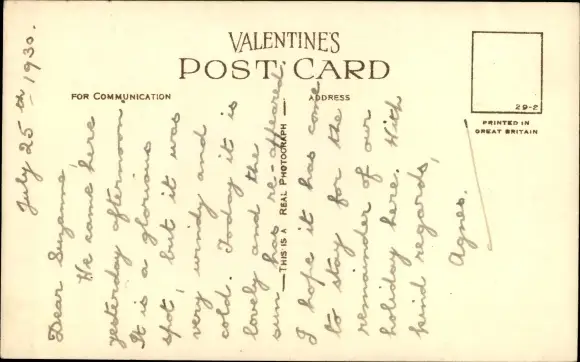 VALENTINE'S
POST CARD
FOR COMMUNICATION
ADDRESS
29-2
PRINTED IN
GREAT BRITAIN
THIS IS A REAL PHOTOGRAPH
July 25th 1930.
Dear Suzanne,
We came here
yesterday afternoon.
It is a glorious
spot, but it was
very windy and
cold. Today it is
lovely and the
sun has re-appeared.
I hope it has come
to stay for the
remainder of our
holiday here. With
kind regards,
Agnes.